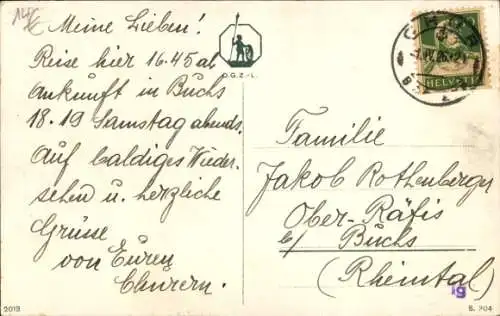 Meine Lieben!
Reise hier 16.45 ab
Ankunft in Buchs
18.19 Samstag abends.
Auf baldiges Wieder-
sehen u. herzliche
Grüsse
von Euren
Churern.
O.G.Z.-L.
CHUR
HELVETIA
Familie
Jakob Rothenberger
Ober-Räfis
b/ Buchs
(Rheintal)
19
2019
S. 304